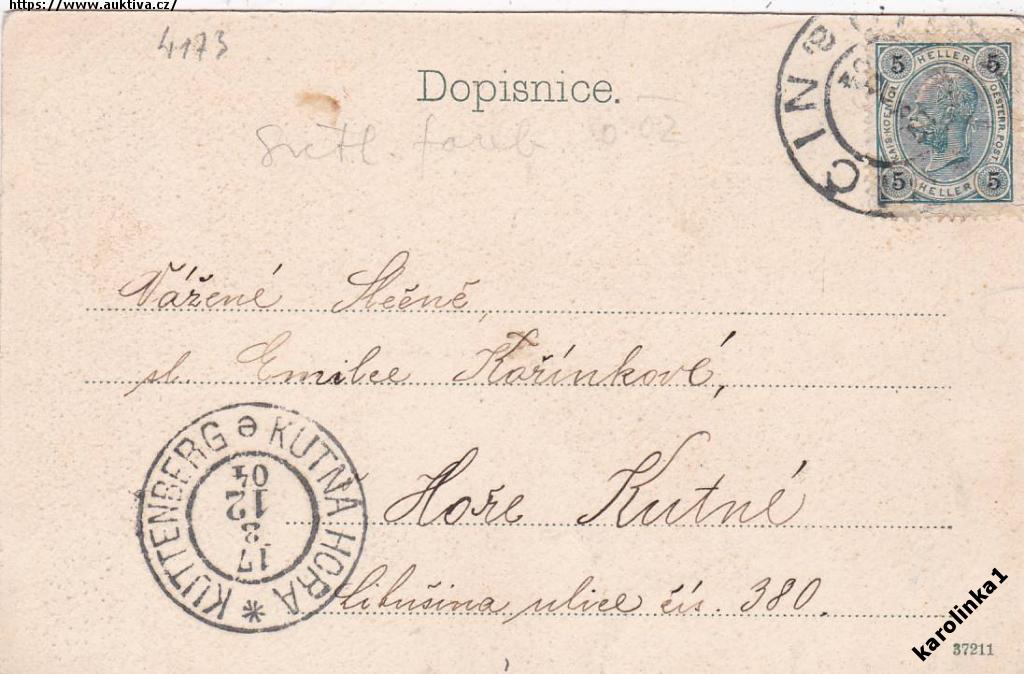 https://www.auktiva.cz/
4173
Dopisnice.
5 HELLER 5
KAIS. KOENIGL. OESTERR. POST.
5 HELLER 5
ČIN
Vážené Slečně,
sl. Emilce Kořínkové,
Hoře Kutné
Libušina ulice čís. 380.
KUTTENBERG e KUTNÁ HORA *
17
3
12
04
37211
karolinka1